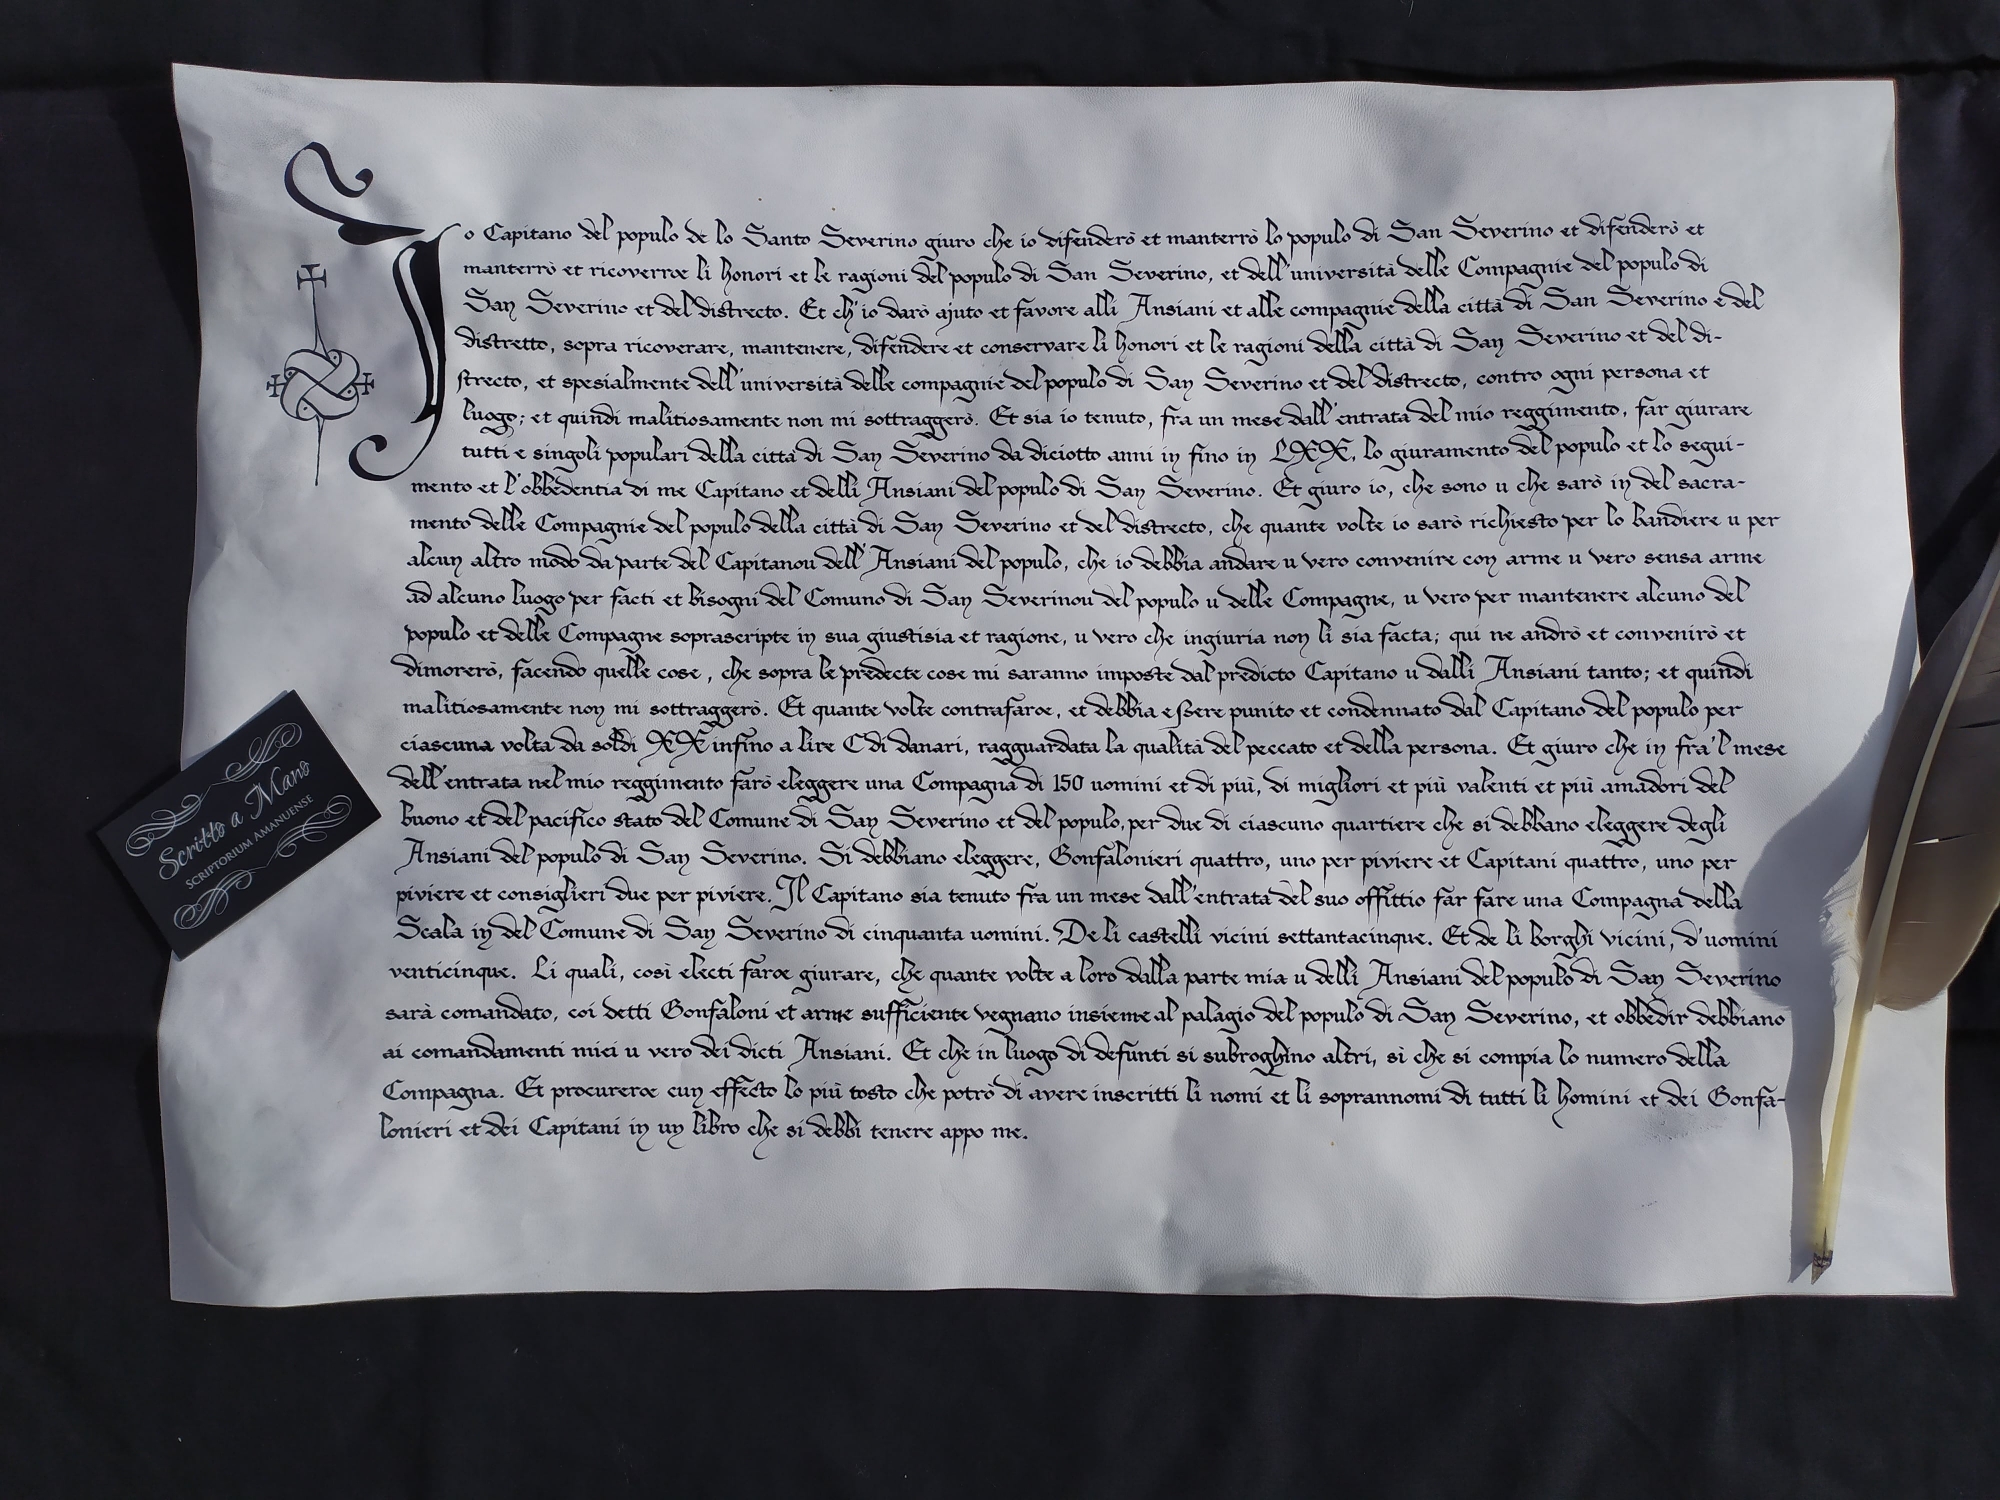 Io Capitano del populo de lo Santo Severino giuro che io difenderò et manterrò lo populo di San Severino et difenderò et
manterrò et ricoverroe li honori et le ragioni del populo di San Severino, et dell'università delle Compagnie del populo di
San Severino et del distrecto. Et ch'io darò ajuto et favore alli Ansiani et alle compagnie della città di San Severino e del
distretto, sopra ricoverare, mantenere, difendere et conservare li honori et le ragioni della città di San Severino et del di-
strecto, et spesialmente dell'università delle compagnie del populo di San Severino et del distrecto, contro ogni persona et
luogo; et quindi malitiosamente non mi sottraggerò. Et sia io tenuto, fra un mese dall'entrata del mio reggimento, far giurare
tutti e singoli populari della città di San Severino da diciotto anni in fino in LXX, lo giuramento del populo et lo segui-
mento et l'obbedentia di me Capitano et delli Ansiani del populo di San Severino. Et giuro io, che sono u che sarò in del sacra-
mento delle Compagnie del populo della città di San Severino et del distrecto, che quante volte io sarò richiesto per lo bandiere u per
alcun altro modo da parte del Capitanou dell'Ansiani del populo, che io debbia andare u vero convenire con arme u vero sensa arme
ad alcuno luogo per facti et bisogni del Comuno di San Severinou del populo u delle Compagne, u vero per mantenere alcuno del
populo et delle Compagne soprascripte in sua giustisia et ragione, u vero che ingiuria non li sia facta; qui ne andrò et convenirò et
dimorerò, facendo quelle cose, che sopra le predecte cose mi saranno imposte dal predicto Capitano u dalli Ansiani tanto; et quindi
malitiosamente non mi sottraggerò. Et quante volte contrafaroe, et debbia essere punito et condennato dal Capitano del populo per
ciascuna volta da soldi XX infino a lire C di danari, ragguardata la qualità del peccato et della persona. Et giuro che in fra'l mese
dell'entrata nel mio reggimento farò eleggere una Compagna di 150 uomini et di più, di migliori et più valenti et più amadori del
buono et del pacifico stato del Comune di San Severino et del populo, per due di ciascuno quartiere che si debbano eleggere degli
Ansiani del populo di San Severino. Si debbiano eleggere, Gonfalonieri quattro, uno per piviere et Capitani quattro, uno per
piviere et consiglieri due per piviere. Il Capitano sia tenuto fra un mese dall'entrata del suo offittio far fare una Compagna della
Scala in del Comune di San Severino di cinquanta uomini. De li castelli vicini settantacinque. Et de li borghi vicini, d'uomini
venticinque. Li quali, così electi faroe giurare, che quante volte a loro dalla parte mia u delli Ansiani del populo di San Severino
sarà comandato, coi detti Gonfaloni et arme sufficiente vegnano insieme al palagio del populo di San Severino, et obbedir debbiano
ai comandamenti miei u vero dei dicti Ansiani. Et che in luogo di defunti si subroghino altri, sì che si compia lo numero della
Compagna. Et procureroe cun effecto lo più tosto che potrò di avere inscritti li nomi et li soprannomi di tutti li homini et dei Gonfa-
lonieri et dei Capitani in un libro che si debbi tenere appo me.
Scritto a Mano
SCRIPTORIUM AMANUENSE